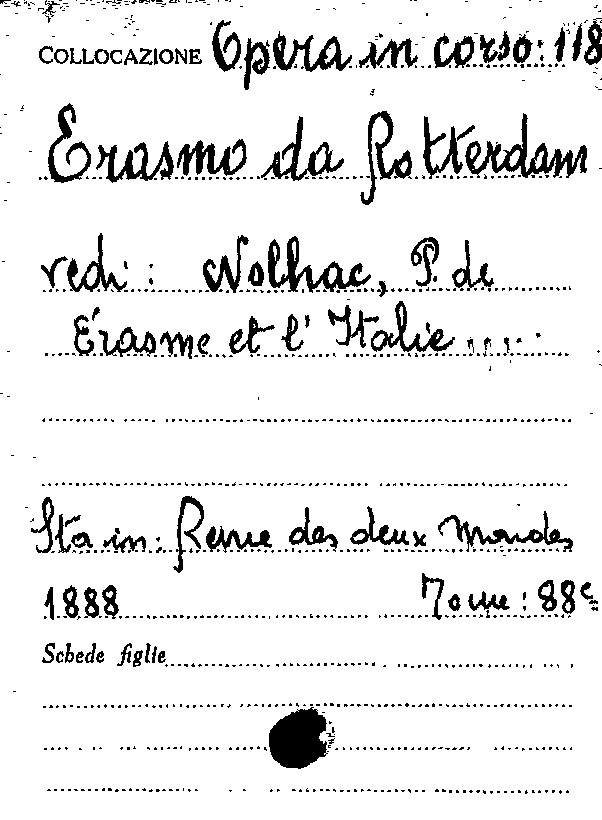 COLLOCAZIONE Opera in corso: 118
Erasmo da Rotterdam
vedi: Nolhac, P. de
Érasme et l'Italie .....
Sta in: Revue des deux Mondes
1888 Tome: 88e
Schede figlie